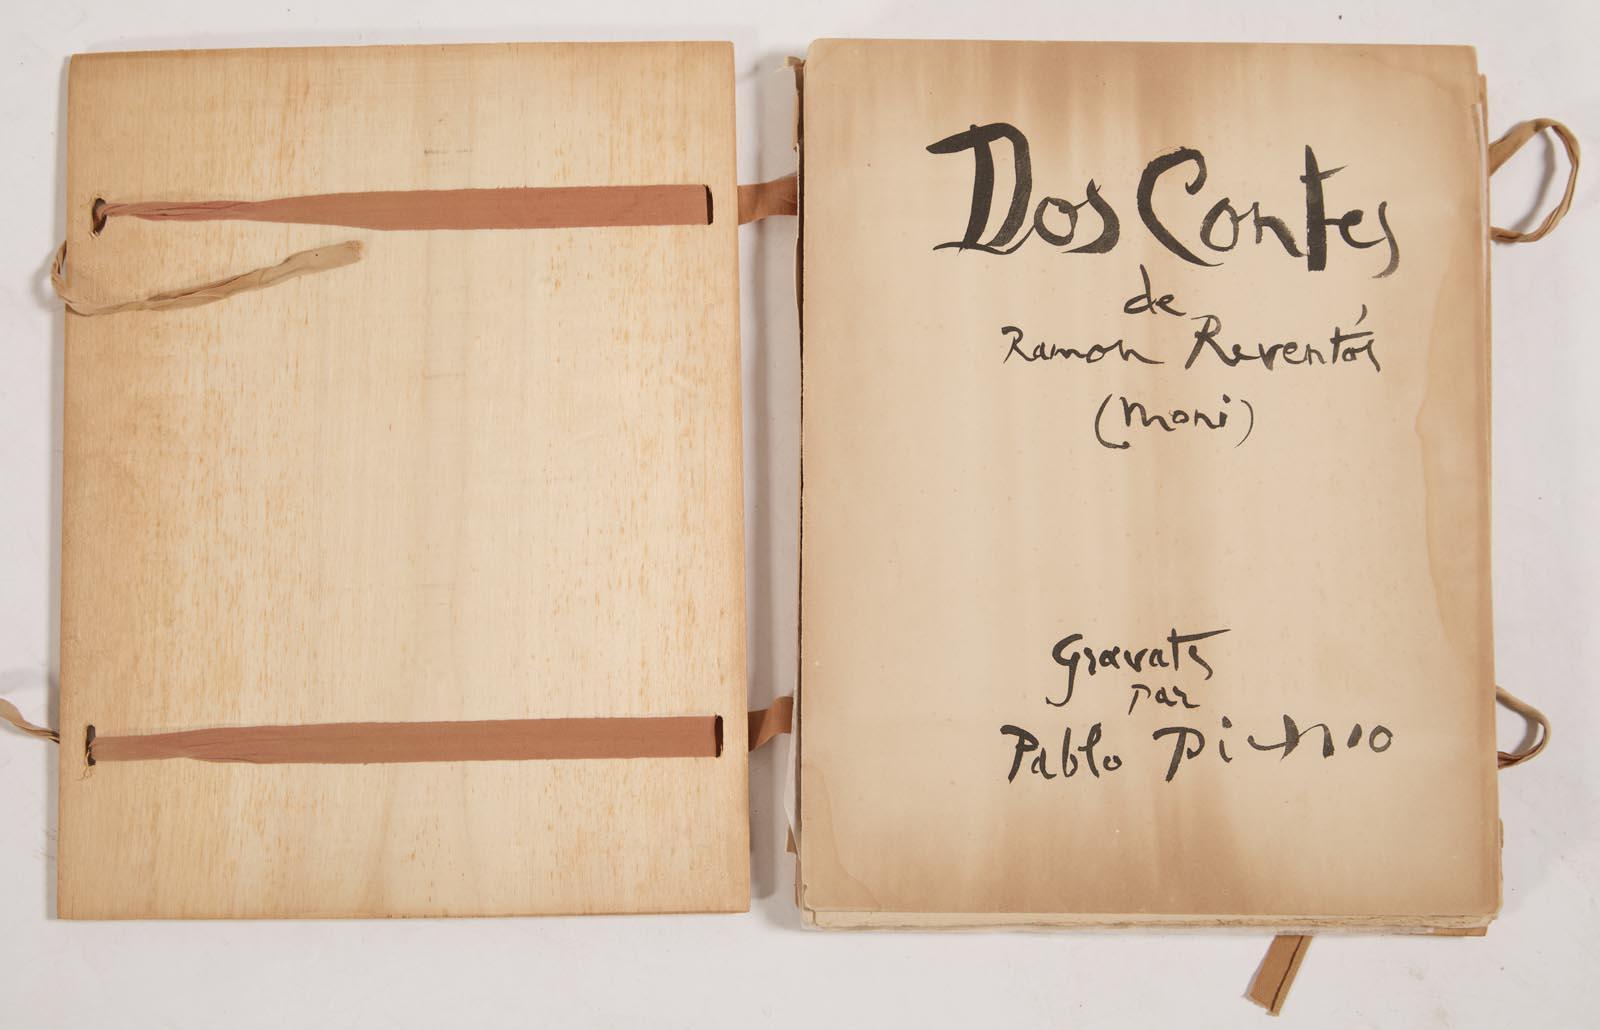 Dos Contes
de
Ramon Reventós
(Moni)
Gravats
par
Pablo Picasso